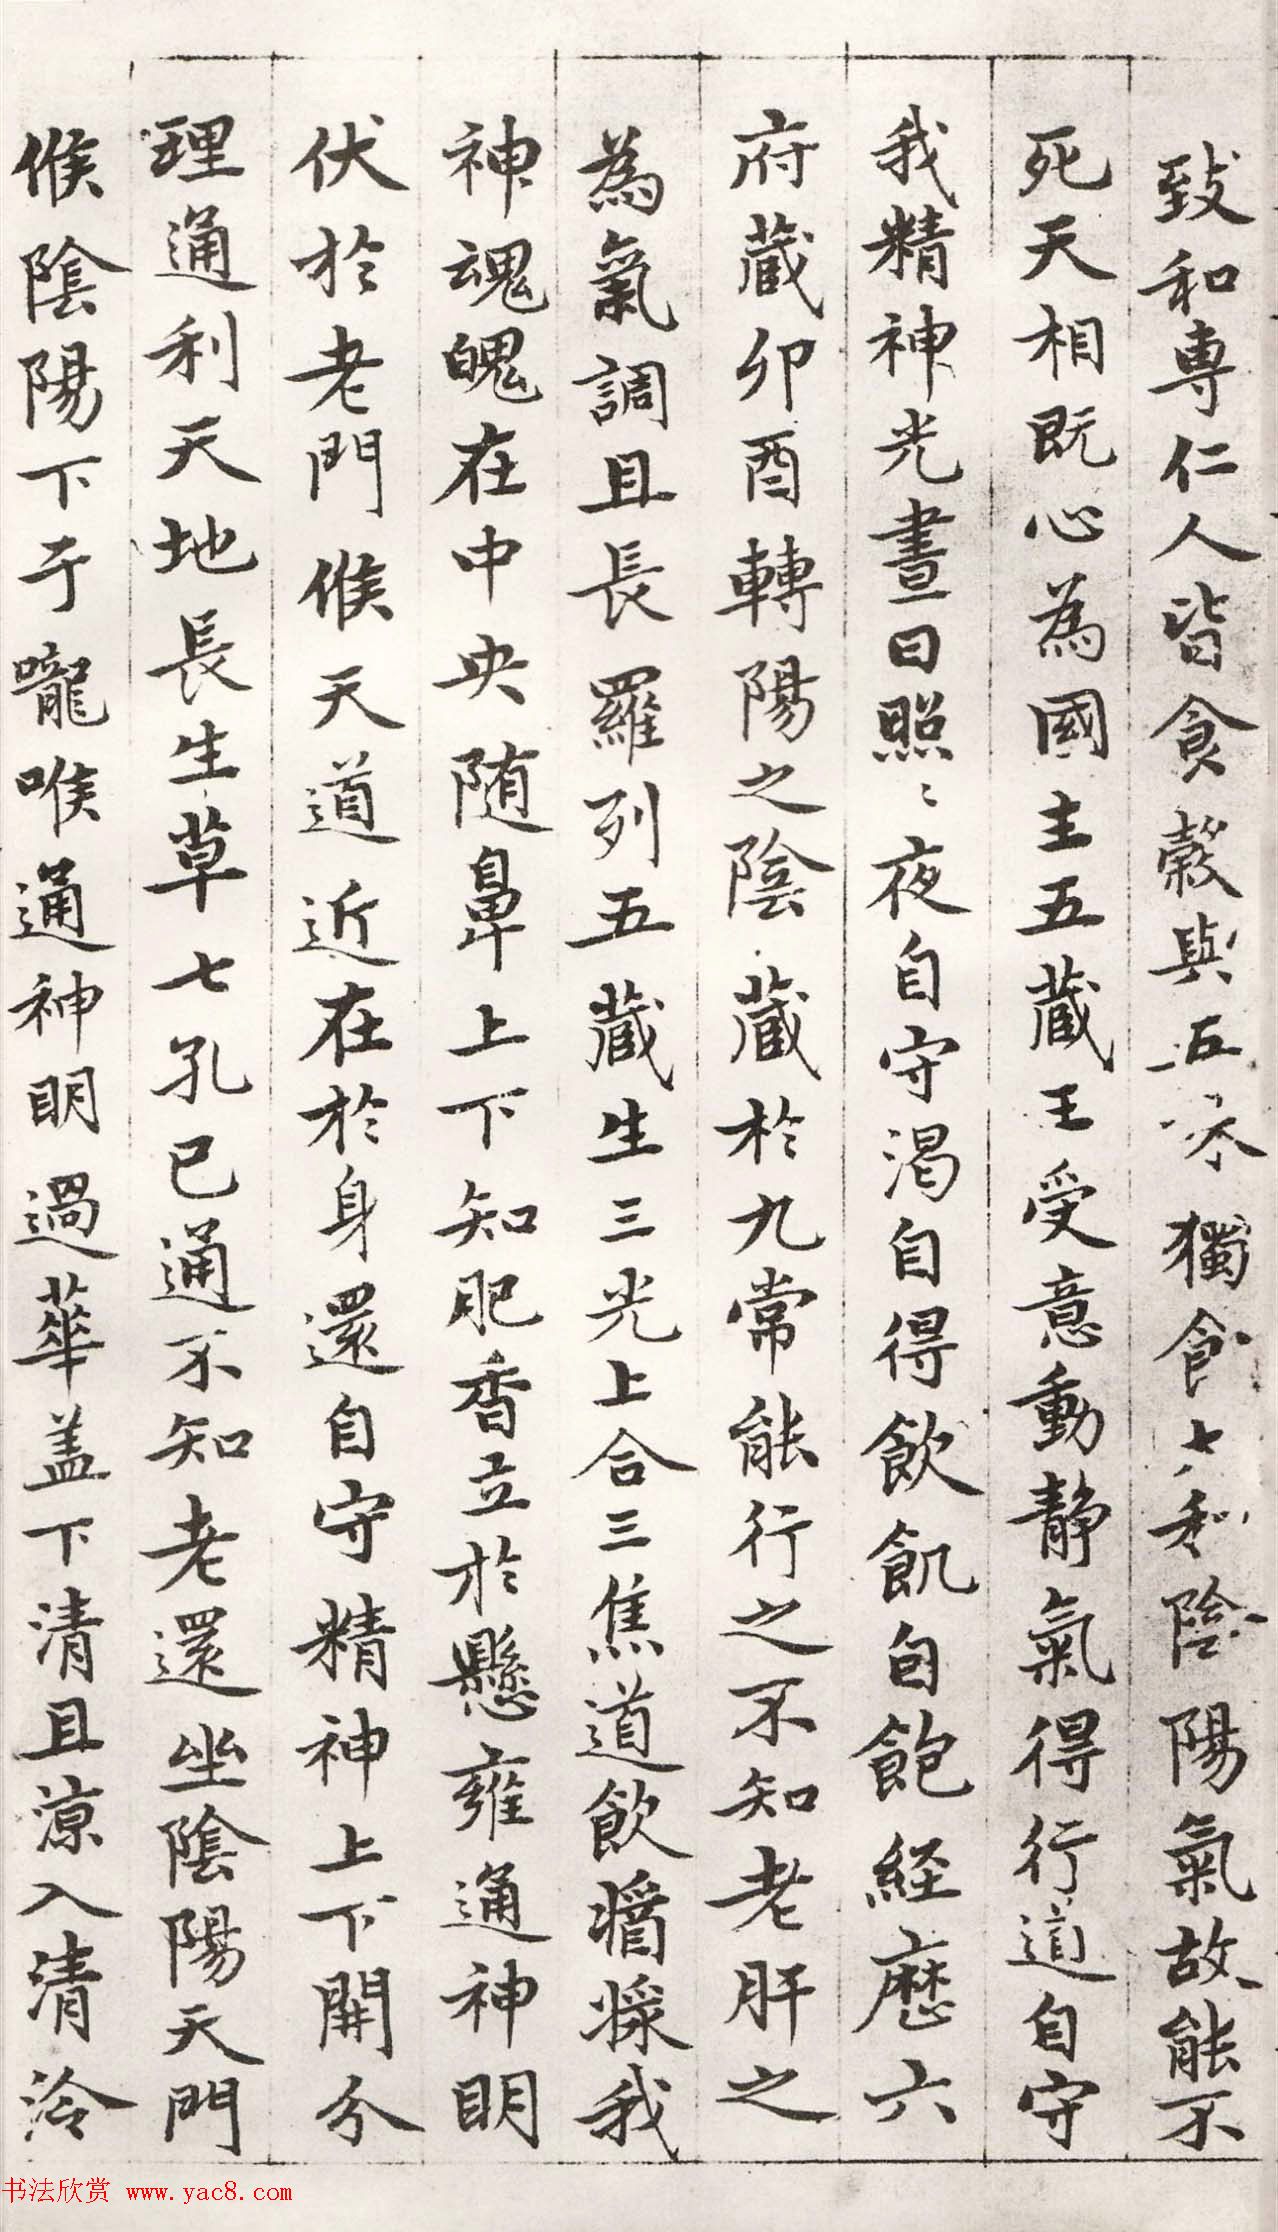 致和專仁人皆食穀與五味獨食大和陰陽氣故能不
死天相既心為國主五藏王受意動靜氣得行道自守
我精神光晝日照〻夜自守渴自得飲飢自飽經歷六
府藏卯酉轉陽之陰藏於九常能行之不知老肝之
為氣調且長羅列五藏生三光上合三焦道飲醬漿我
神魂魄在中央随鼻上下知肥香立於懸雍通神明
伏於老門候天道近在於身還自守精神上下開分
理通利天地長生草七孔已通不知老還坐陰陽天門
候陰陽下于嚨喉通神明過華盖下清且涼入清泠
书法欣赏 www.yac8.com